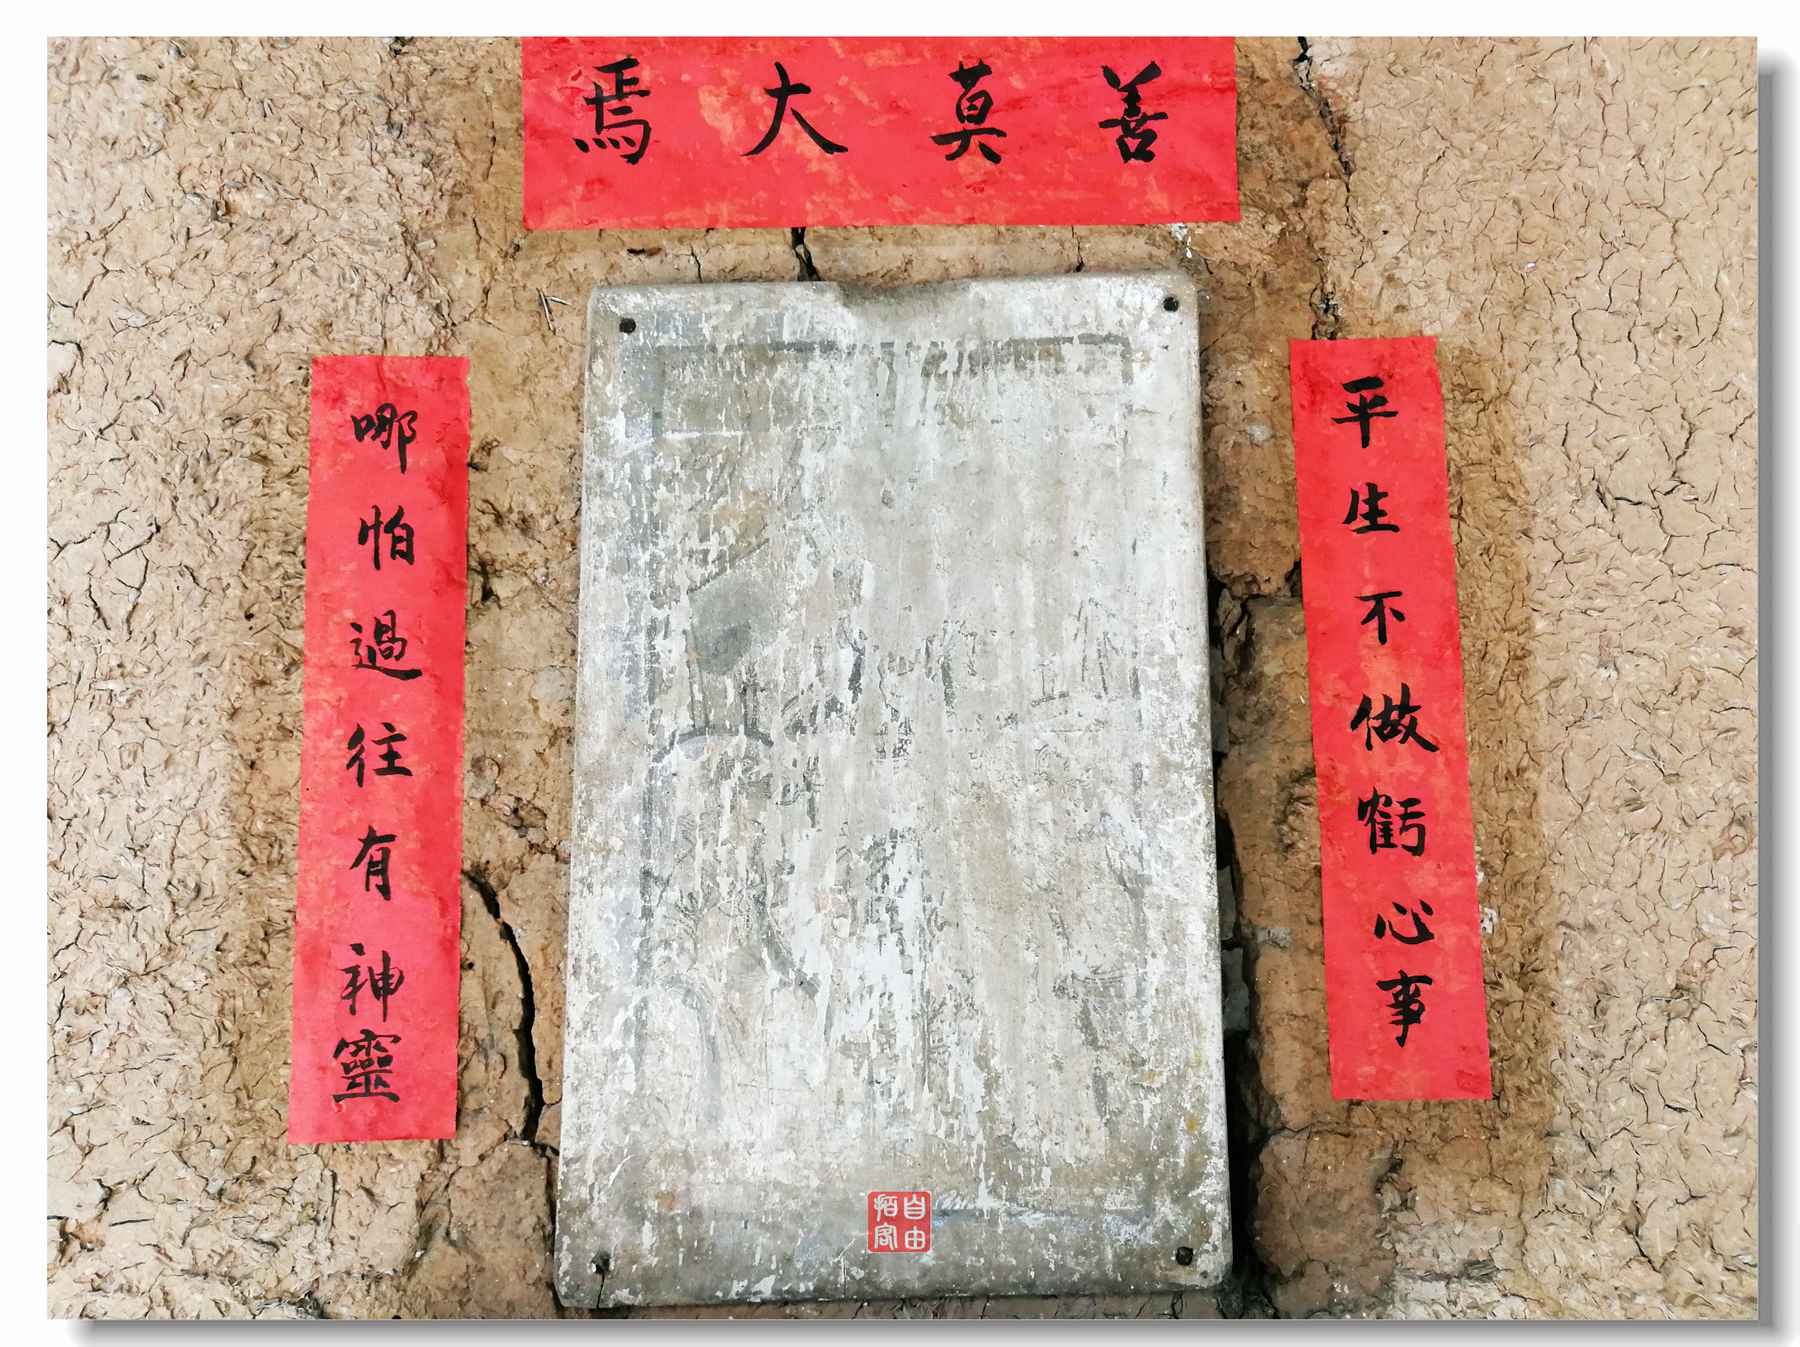 善莫大焉
平生不做虧心事
哪怕過往有神靈
自由
拍客